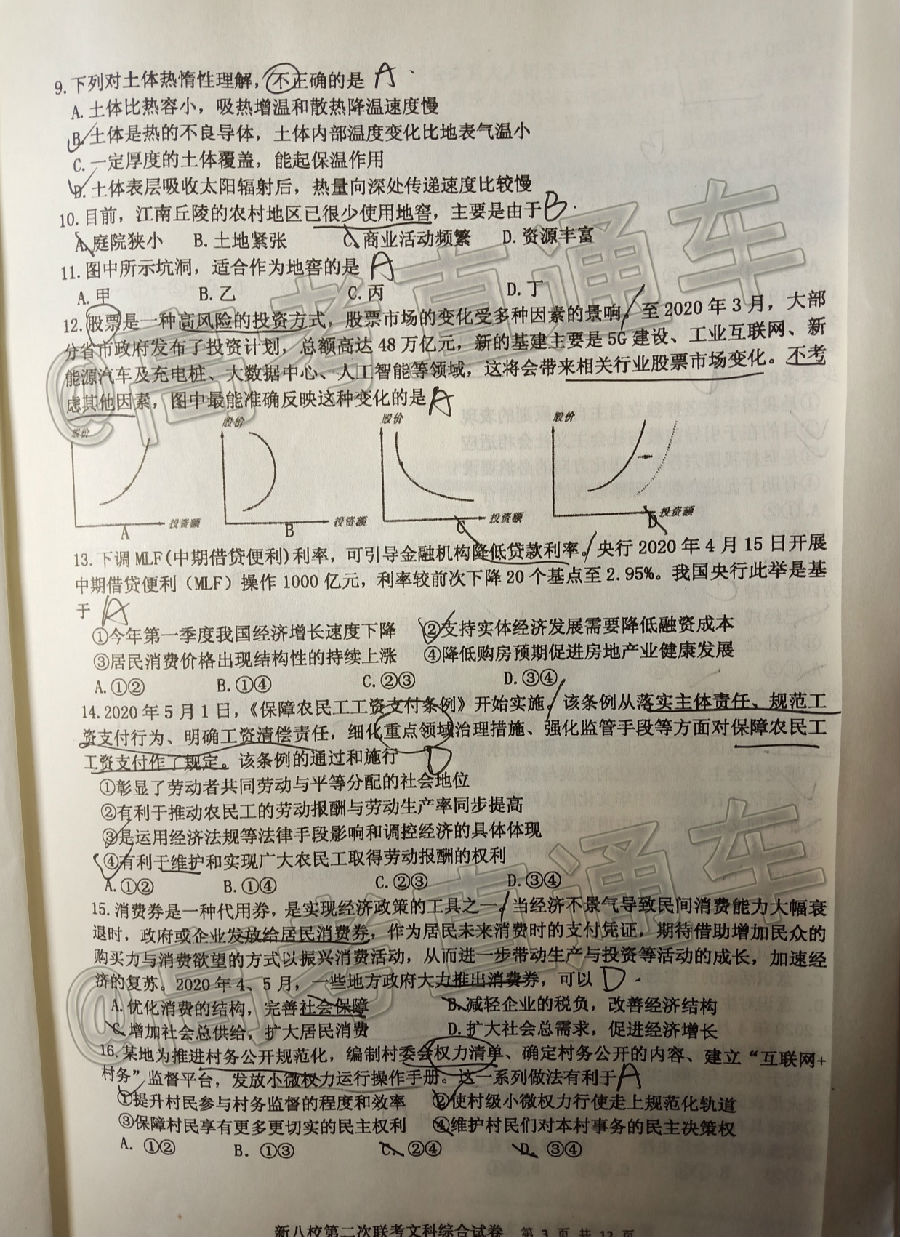 9.下列对土体热惰性理解,不正确的是 A
A.土体比热容小，吸热增温和散热降温速度慢
B.土体是热的不良导体，土体内部温度变化比地表气温小
C.一定厚度的土体覆盖，能起保温作用
D.土体表层吸收太阳辐射后，热量向深处传递速度比较慢
10.目前，江南丘陵的农村地区已很少使用地窖，主要是由于 B
A.庭院狭小 B.土地紧张 C.商业活动频繁 D.资源丰富
11.图中所示坑洞，适合作为地窖的是 A
A.甲 B.乙 C.丙 D.丁
12.股票是一种高风险的投资方式，股票市场的变化受多种因素的影响。至2020年3月，大部
分省市政府发布了投资计划，总额高达48万亿元，新的基建主要是5G建设、工业互联网、新
能源汽车及充电桩、大数据中心、人工智能等领域，这将会带来相关行业股票市场变化。不考
虑其他因素，图中最能准确反映这种变化的是 A
股价 股价 股价 股价
投资额 投资额 投资额 投资额
A B C D
13.下调MLF(中期借贷便利)利率，可引导金融机构降低贷款利率。央行2020年4月15日开展
中期借贷便利（MLF）操作1000亿元，利率较前次下降20个基点至2.95%。我国央行此举是基
于 A
①今年第一季度我国经济增长速度下降 ②支持实体经济发展需要降低融资成本
③居民消费价格出现结构性的持续上涨 ④降低购房预期促进房地产业健康发展
A.①② B.①④ C.②③ D.③④
14.2020年5月1日，《保障农民工工资支付条例》开始实施。该条例从落实主体责任、规范工
资支付行为、明确工资清偿责任，细化重点领域治理措施、强化监管手段等方面对保障农民工
工资支付作了规定。该条例的通过和施行 D
①彰显了劳动者共同劳动与平等分配的社会地位
②有利于推动农民工的劳动报酬与劳动生产率同步提高
③是运用经济法规等法律手段影响和调控经济的具体体现
④有利于维护和实现广大农民工取得劳动报酬的权利
A.①② B.①④ C.②③ D.③④
15.消费券是一种代用券，是实现经济政策的工具之一。当经济不景气导致民间消费能力大幅衰
退时，政府或企业发放给居民消费券，作为居民未来消费时的支付凭证，期待借助增加民众的
购买力与消费欲望的方式以振兴消费活动，从而进一步带动生产与投资等活动的成长，加速经
济的复苏。2020年4、5月，一些地方政府大力推出消费券，可以 D
A.优化消费的结构，完善社会保障 B.减轻企业的税负，改善经济结构
C.增加社会总供给，扩大居民消费 D.扩大社会总需求，促进经济增长
16.某地为推进村务公开规范化，编制村委会权力清单、确定村务公开的内容、建立“互联网+
村务”监督平台，发放小微权力运行操作手册。这一系列做法有利于 A
①提升村民参与村务监督的程度和效率 ②使村级小微权力行使走上规范化轨道
③保障村民享有更多更切实的民主权利 ④维护村民们对本村事务的民主决策权
A. ①② B. ①③ C. ②④ D. ③④
新八校第二次联考文科综合试卷 第 3 页 共 12 页
@高考直通车
@高考直通车